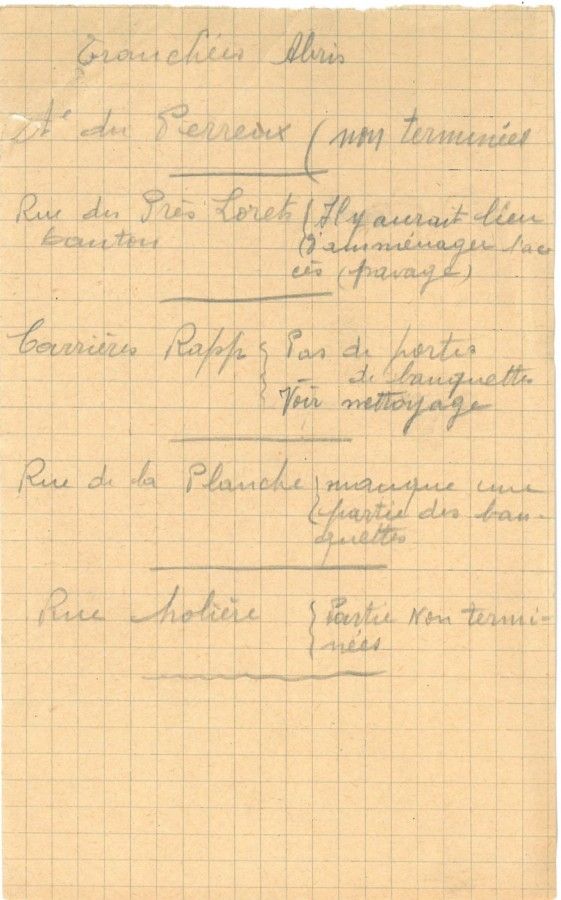 Tranchées Abris
Ate du Perreux ( non terminées
Rue des Près Lorets ( Il y aurait lieu
banton ( d'amménager l'ac
cès (pavage)
Carrières Rapp { Pas de portes
de banquettes
Voir nettoyage
Rue de la Planche } manque une
( partie des ban-
quettes
Rue Molière } Partie non termi-
nées